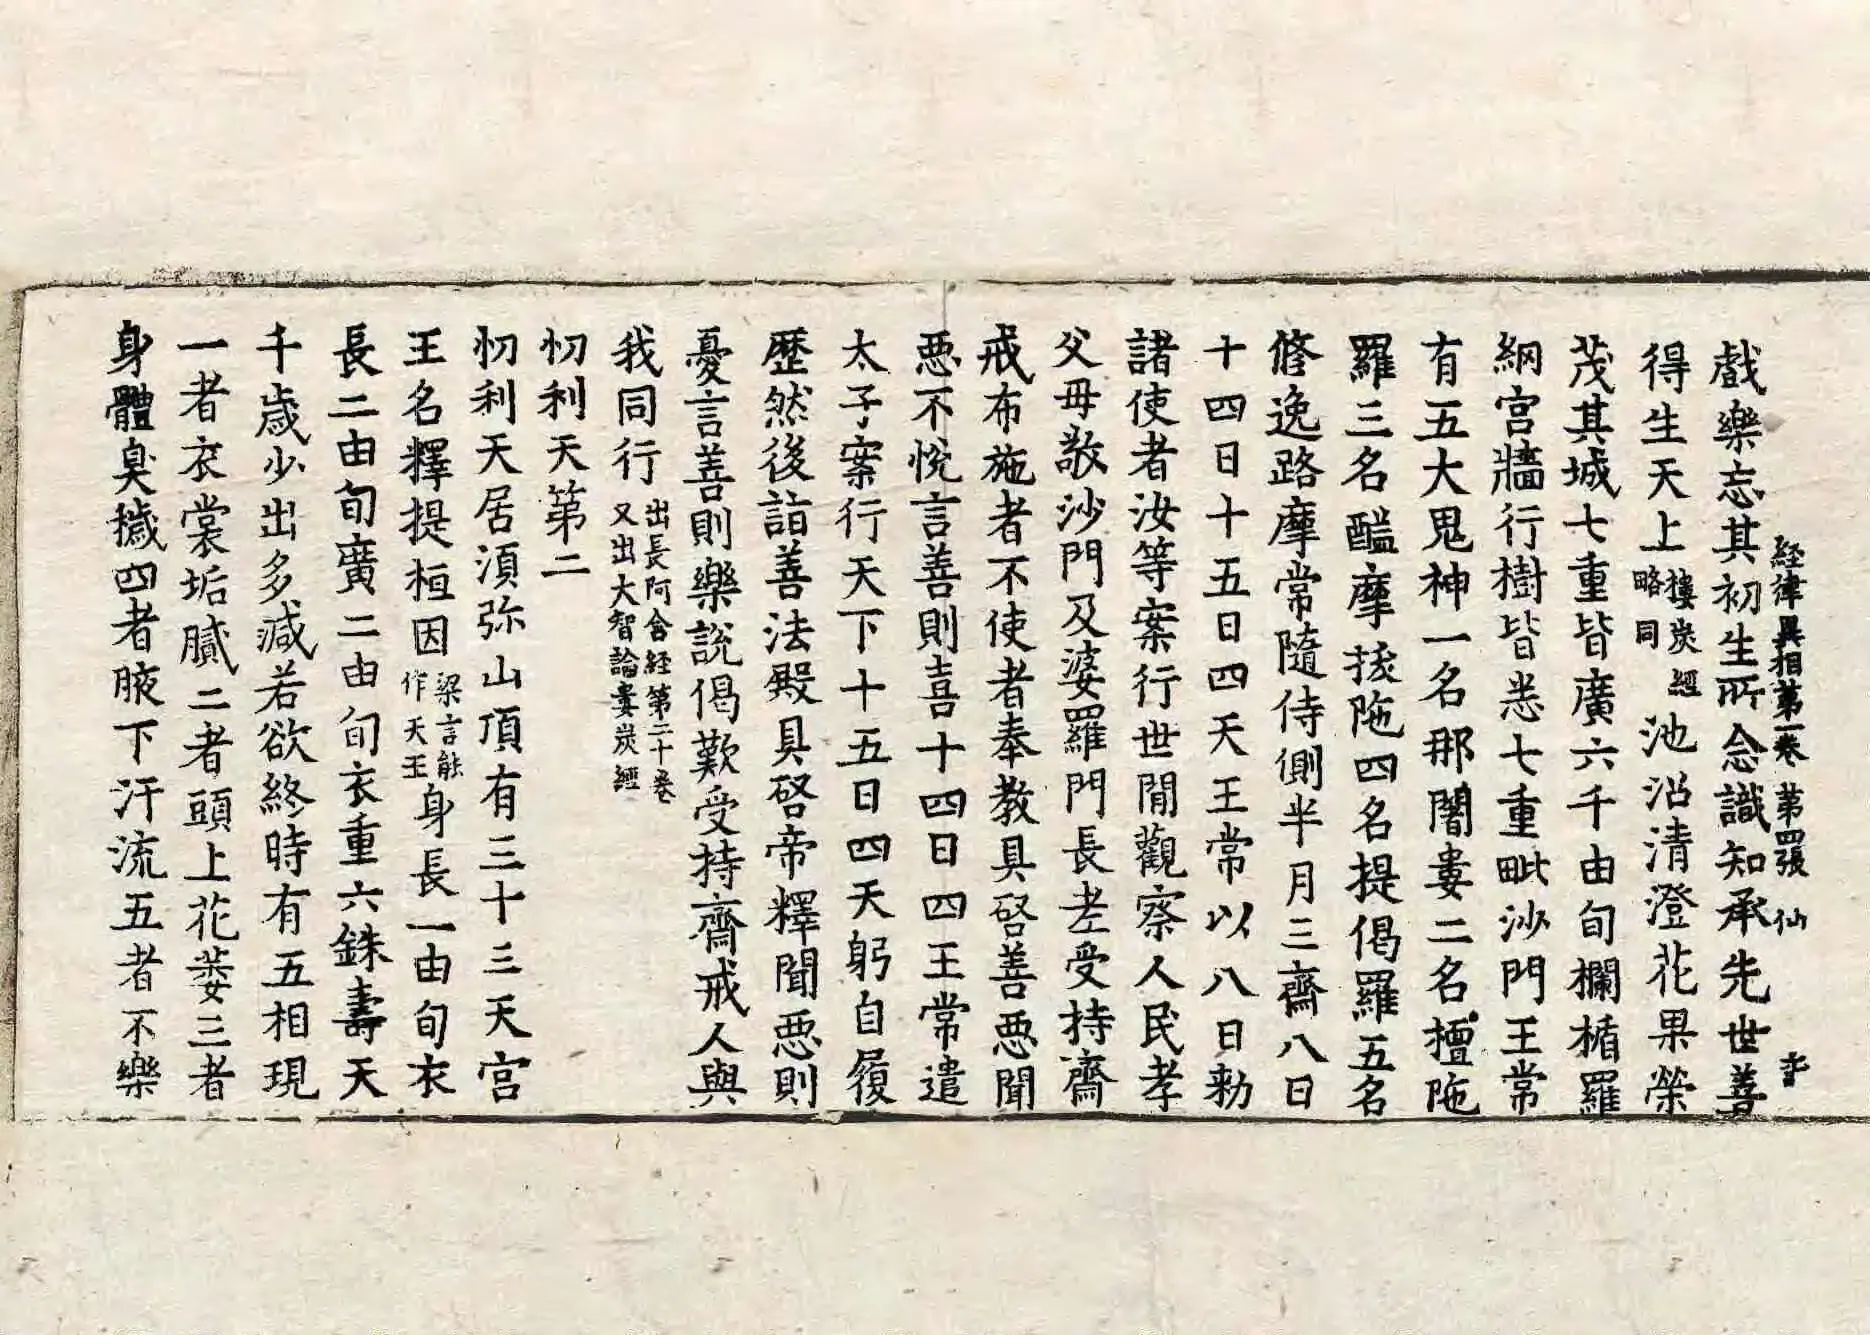 経律異相第一巻 第四張 仙
戲樂忘其初生所念識知承先世善
得生天上樓炭經略同池沼清澄花果榮
茂其城七重皆廣六千由旬欄楯羅
網宮牆行樹皆悉七重毗沙門王常
有五大鬼神一名那闍婁二名檀陁
羅三名醯摩拔陁四名提偈羅五名
修逸路摩常隨侍側半月三齋八日
十四日十五日四天王常以八日勑
諸使者汝等案行世間觀察人民孝
父母敬沙門及婆羅門長老受持齋
戒布施者不使者奉教具啓善惡聞
惡不悅言善則喜十四日四王常遣
太子案行天下十五日四天躬自履
歷然後詣善法殿具啓帝釋聞惡則
憂言善則樂說偈歎受持齋戒人與
我同行出長阿含経第二十巻又出大智論婁炭經
忉利天第二
忉利天居須弥山頂有三十三天宮
王名釋提桓因梁言能作天王身長一由旬衣
長二由旬廣二由旬衣重六銖壽天
千歲少出多減若欲終時有五相現
一者衣裳垢膩二者頭上花萎三者
身體臭穢四者腋下汗流五者不樂